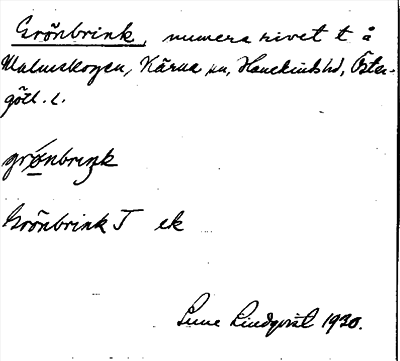 Grönbrink, numera rivet t å
Malmskogen, Kärna sn, Hanekinds hd, Öster-
götl. l.
grø̲nbriŋk
Grönbrink T ek
Sune Lindqvist 1930.